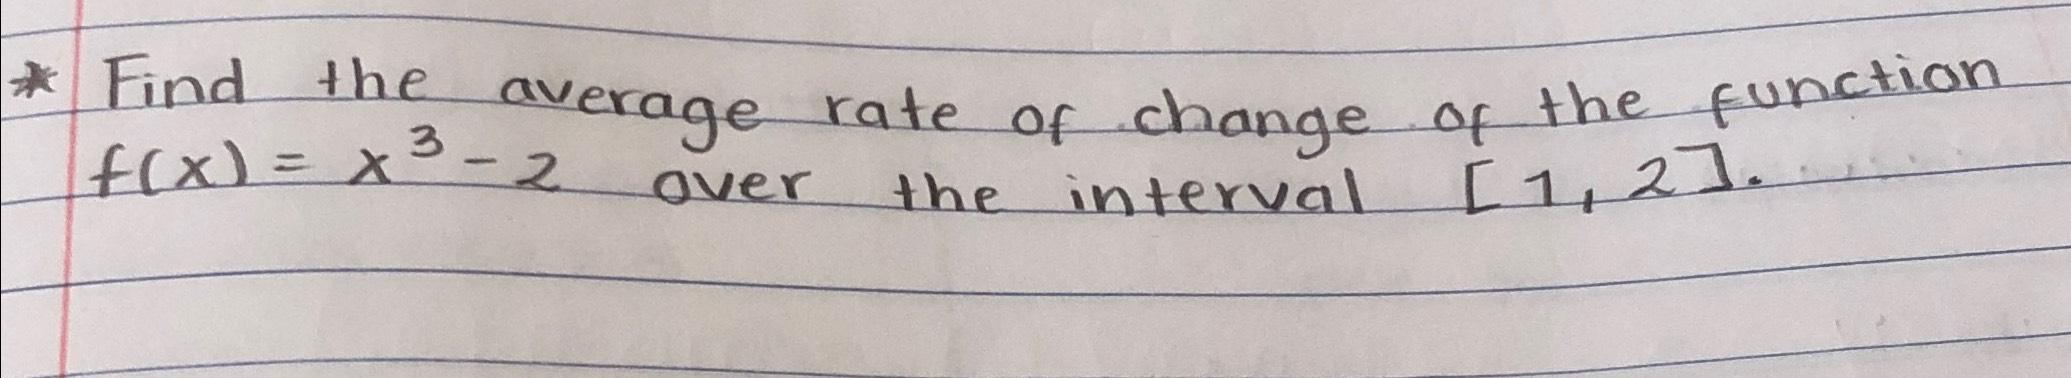 * Find the average rate of change of the function
f(x) = x³ - 2 over the interval [1, 2].